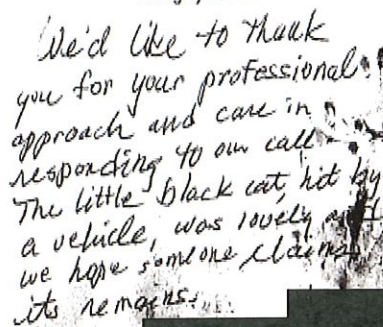 We'd like to thank
you for your professional
approach and care in
responding to our call.
The little black cat, hit by
a vehicle, was lovely and
we hope someone claims
its remains.